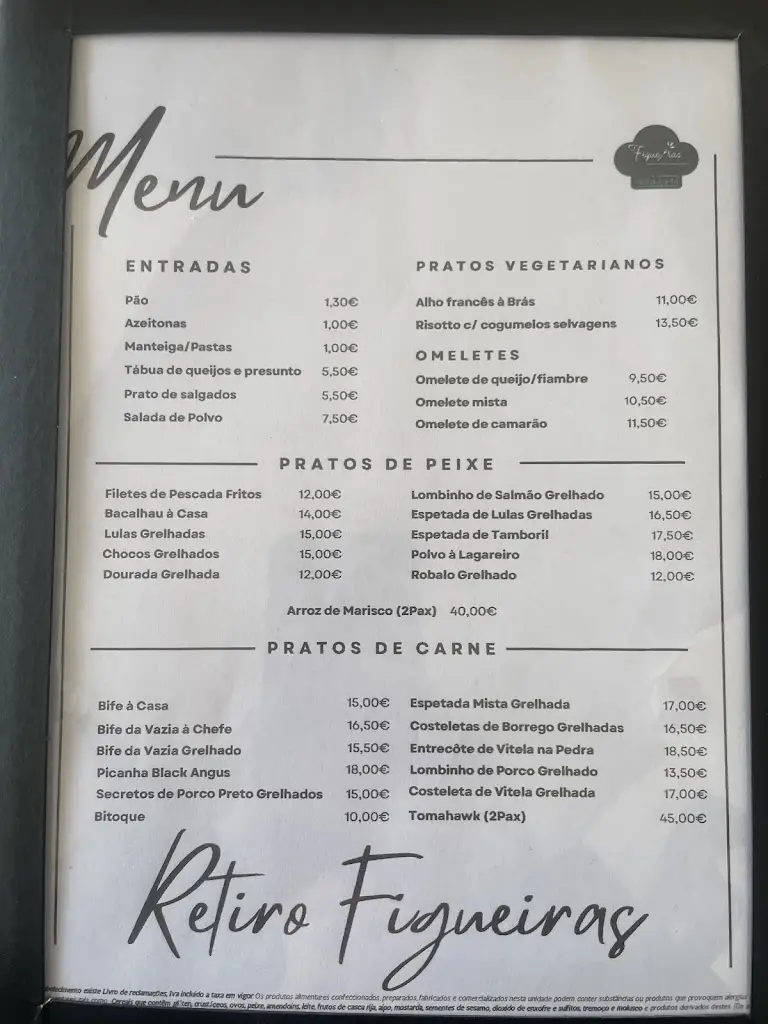 Menu
Figueiras
ENTRADAS
Pão 1,30€
Azeitonas 1,00€
Manteiga/Pastas 1,00€
Tábua de queijos e presunto 5,50€
Prato de salgados 5,50€
Salada de Polvo 7,50€
PRATOS VEGETARIANOS
Alho francês à Brás 11,00€
Risotto c/ cogumelos selvagens 13,50€
OMELETES
Omelete de queijo/fiambre 9,50€
Omelete mista 10,50€
Omelete de camarão 11,50€
PRATOS DE PEIXE
Filetes de Pescada Fritos 12,00€
Bacalhau à Casa 14,00€
Lulas Grelhadas 15,00€
Chocos Grelhados 15,00€
Dourada Grelhada 12,00€
Lombinho de Salmão Grelhado 15,00€
Espetada de Lulas Grelhadas 16,50€
Espetada de Tamboril 17,50€
Polvo à Lagareiro 18,00€
Robalo Grelhado 12,00€
Arroz de Marisco (2Pax) 40,00€
PRATOS DE CARNE
Bife à Casa 15,00€
Bife da Vazia à Chefe 16,50€
Bife da Vazia Grelhado 15,50€
Picanha Black Angus 18,00€
Secretos de Porco Preto Grelhados 15,00€
Bitoque 10,00€
Espetada Mista Grelhada 17,00€
Costeletas de Borrego Grelhadas 16,50€
Entrecôte de Vitela na Pedra 18,50€
Lombinho de Porco Grelhado 13,50€
Costeleta de Vitela Grelhada 17,00€
Tomahawk (2Pax) 45,00€
Retiro Figueiras
existe Livro de reclamações, Iva incluído a taxa em vigor Os produtos alimentares confeccionados, preparados, fabricados e comercializados nesta unidade podem conter substâncias ou produtos que provoquem
como: Cereais que contêm glúten, crustáceos, ovos, peixe, amendoins, leite, frutos de casca rija, aipo, mostarda, sementes de sesamo, dioxido de enxofre e sulfitos, tremoço e molusco e produtos derivados destes